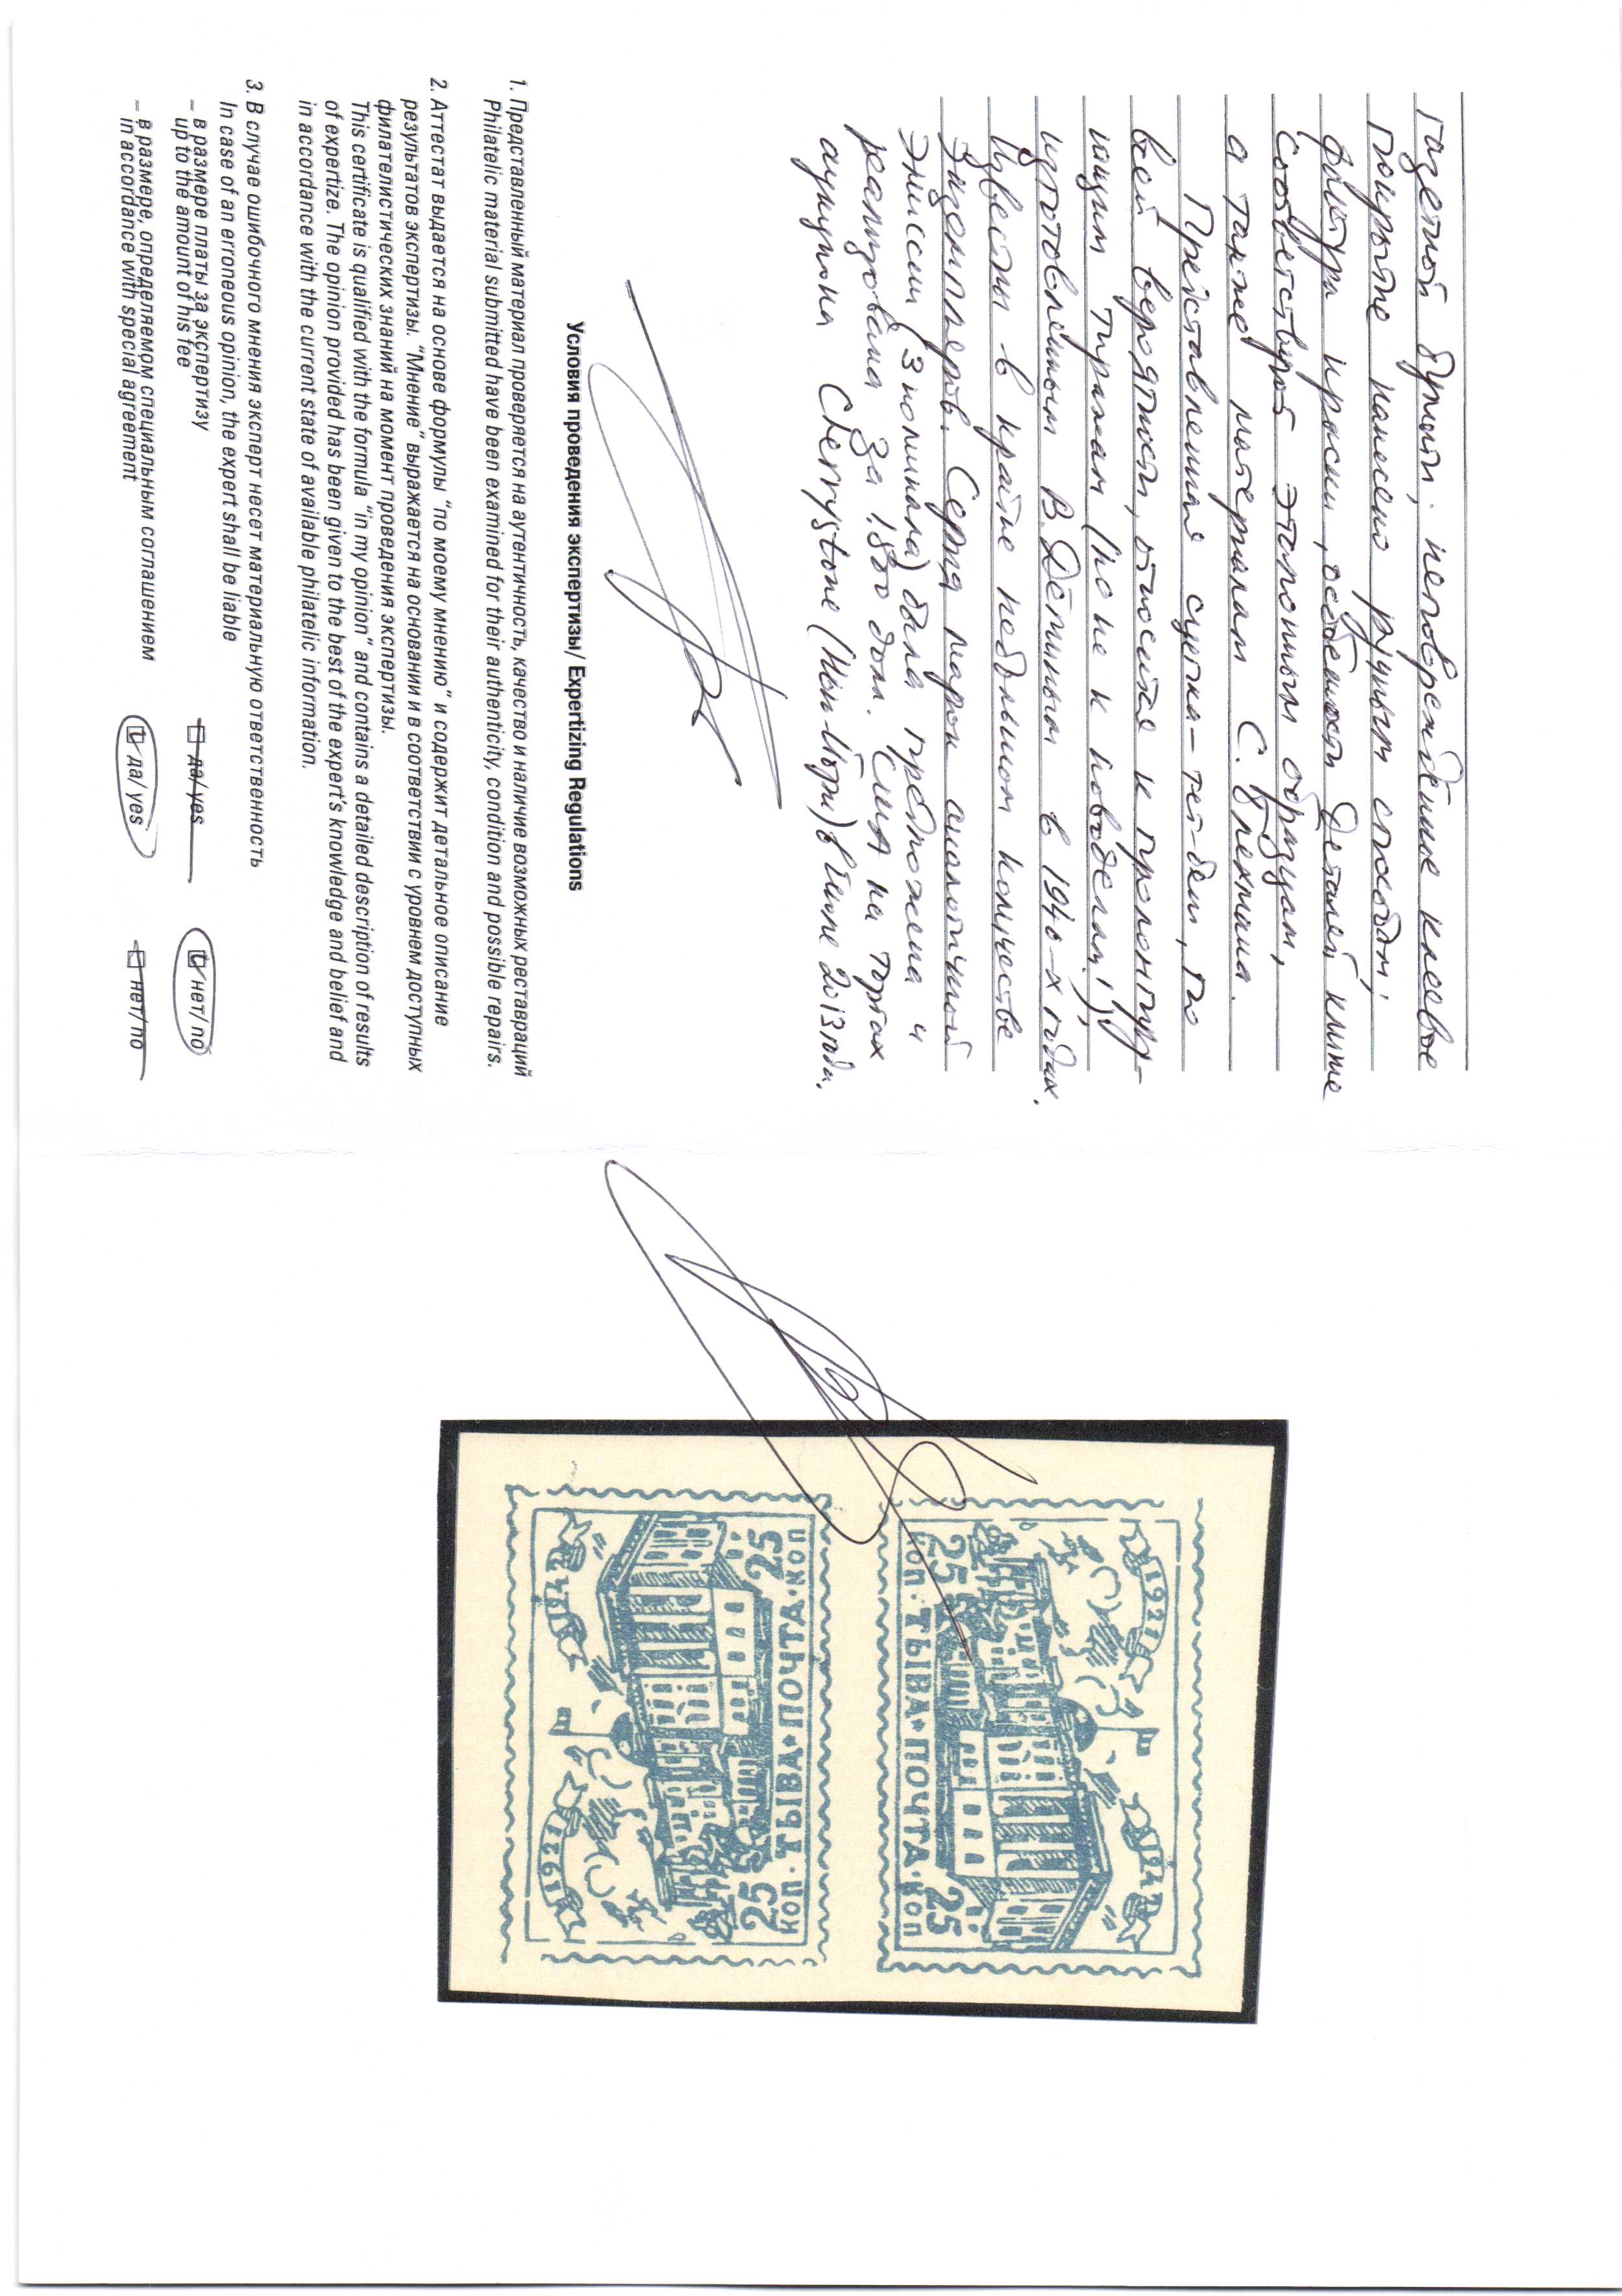 газетной бумаги; неповреждённое клеевое
покрытие нанесено ручным способом;
фактура краски, особенности деталей клише
соответствуют эталонным образцам,
а также материалам С. Блехмана.
Представленная сцепка – тет-беш, по
всей вероятности, относится к пролонгиру-
ющим тиражам (но не к новоделам!),
изготовленным В. Дёминым в 1940-х годах.
Известны в крайне небольшом количестве
экземпляров. Серия марок аналогичной
эмиссии (3 номинала) была предложена и
реализована за 1.800 долл. США на торгах
аукциона Cherrystone (Нью-Йорк) в июне 2013 года.
Условия проведения экспертизы/ Expertizing Regulations
1. Представленный материал проверяется на аутентичность, качество и наличие возможных реставраций
Philatelic material submitted have been examined for their authenticity, condition and possible repairs.
2. Аттестат выдается на основе формулы "по моему мнению" и содержит детальное описание
результатов экспертизы. "Мнение" выражается на основании и в соответствии с уровнем доступных
филателистических знаний на момент проведения экспертизы.
This certificate is qualified with the formula "in my opinion" and contains a detailed description of results
of expertize. The opinion provided has been given to the best of the expert's knowledge and belief and
in accordance with the current state of available philatelic information.
3. В случае ошибочного мнения эксперт несет материальную ответственность
In case of an erroneous opinion, the expert shall be liable
– в размере платы за экспертизу да/ yes нет/ no
up to the amount of his fee
– в размере, определяемом специальным соглашением да/ yes нет/ no
in accordance with special agreement
1921 1942
25 25
КОП · ТЫВА · ПОЧТА · КОП
1921 1942
25 25
КОП · ТЫВА · ПОЧТА · КОП